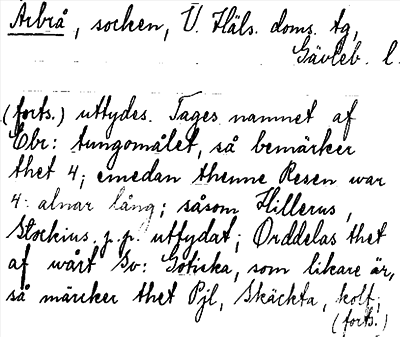 Arbrå, socken, V. Häls. doms. tg,
Gävleb. l.
(forts.) uttydes. Tages namnet af
Ebr: tungomålet, så bemärker
thet 4; emedan thenne Resen war
4: alnar lång; såsom Hillerus,
Stockius, p.p. uttydat; Orddelas thet
af wårt Sv: Götiska, som likare är,
så märcker thet Pjl, Skäckta, kolf;
(forts.)